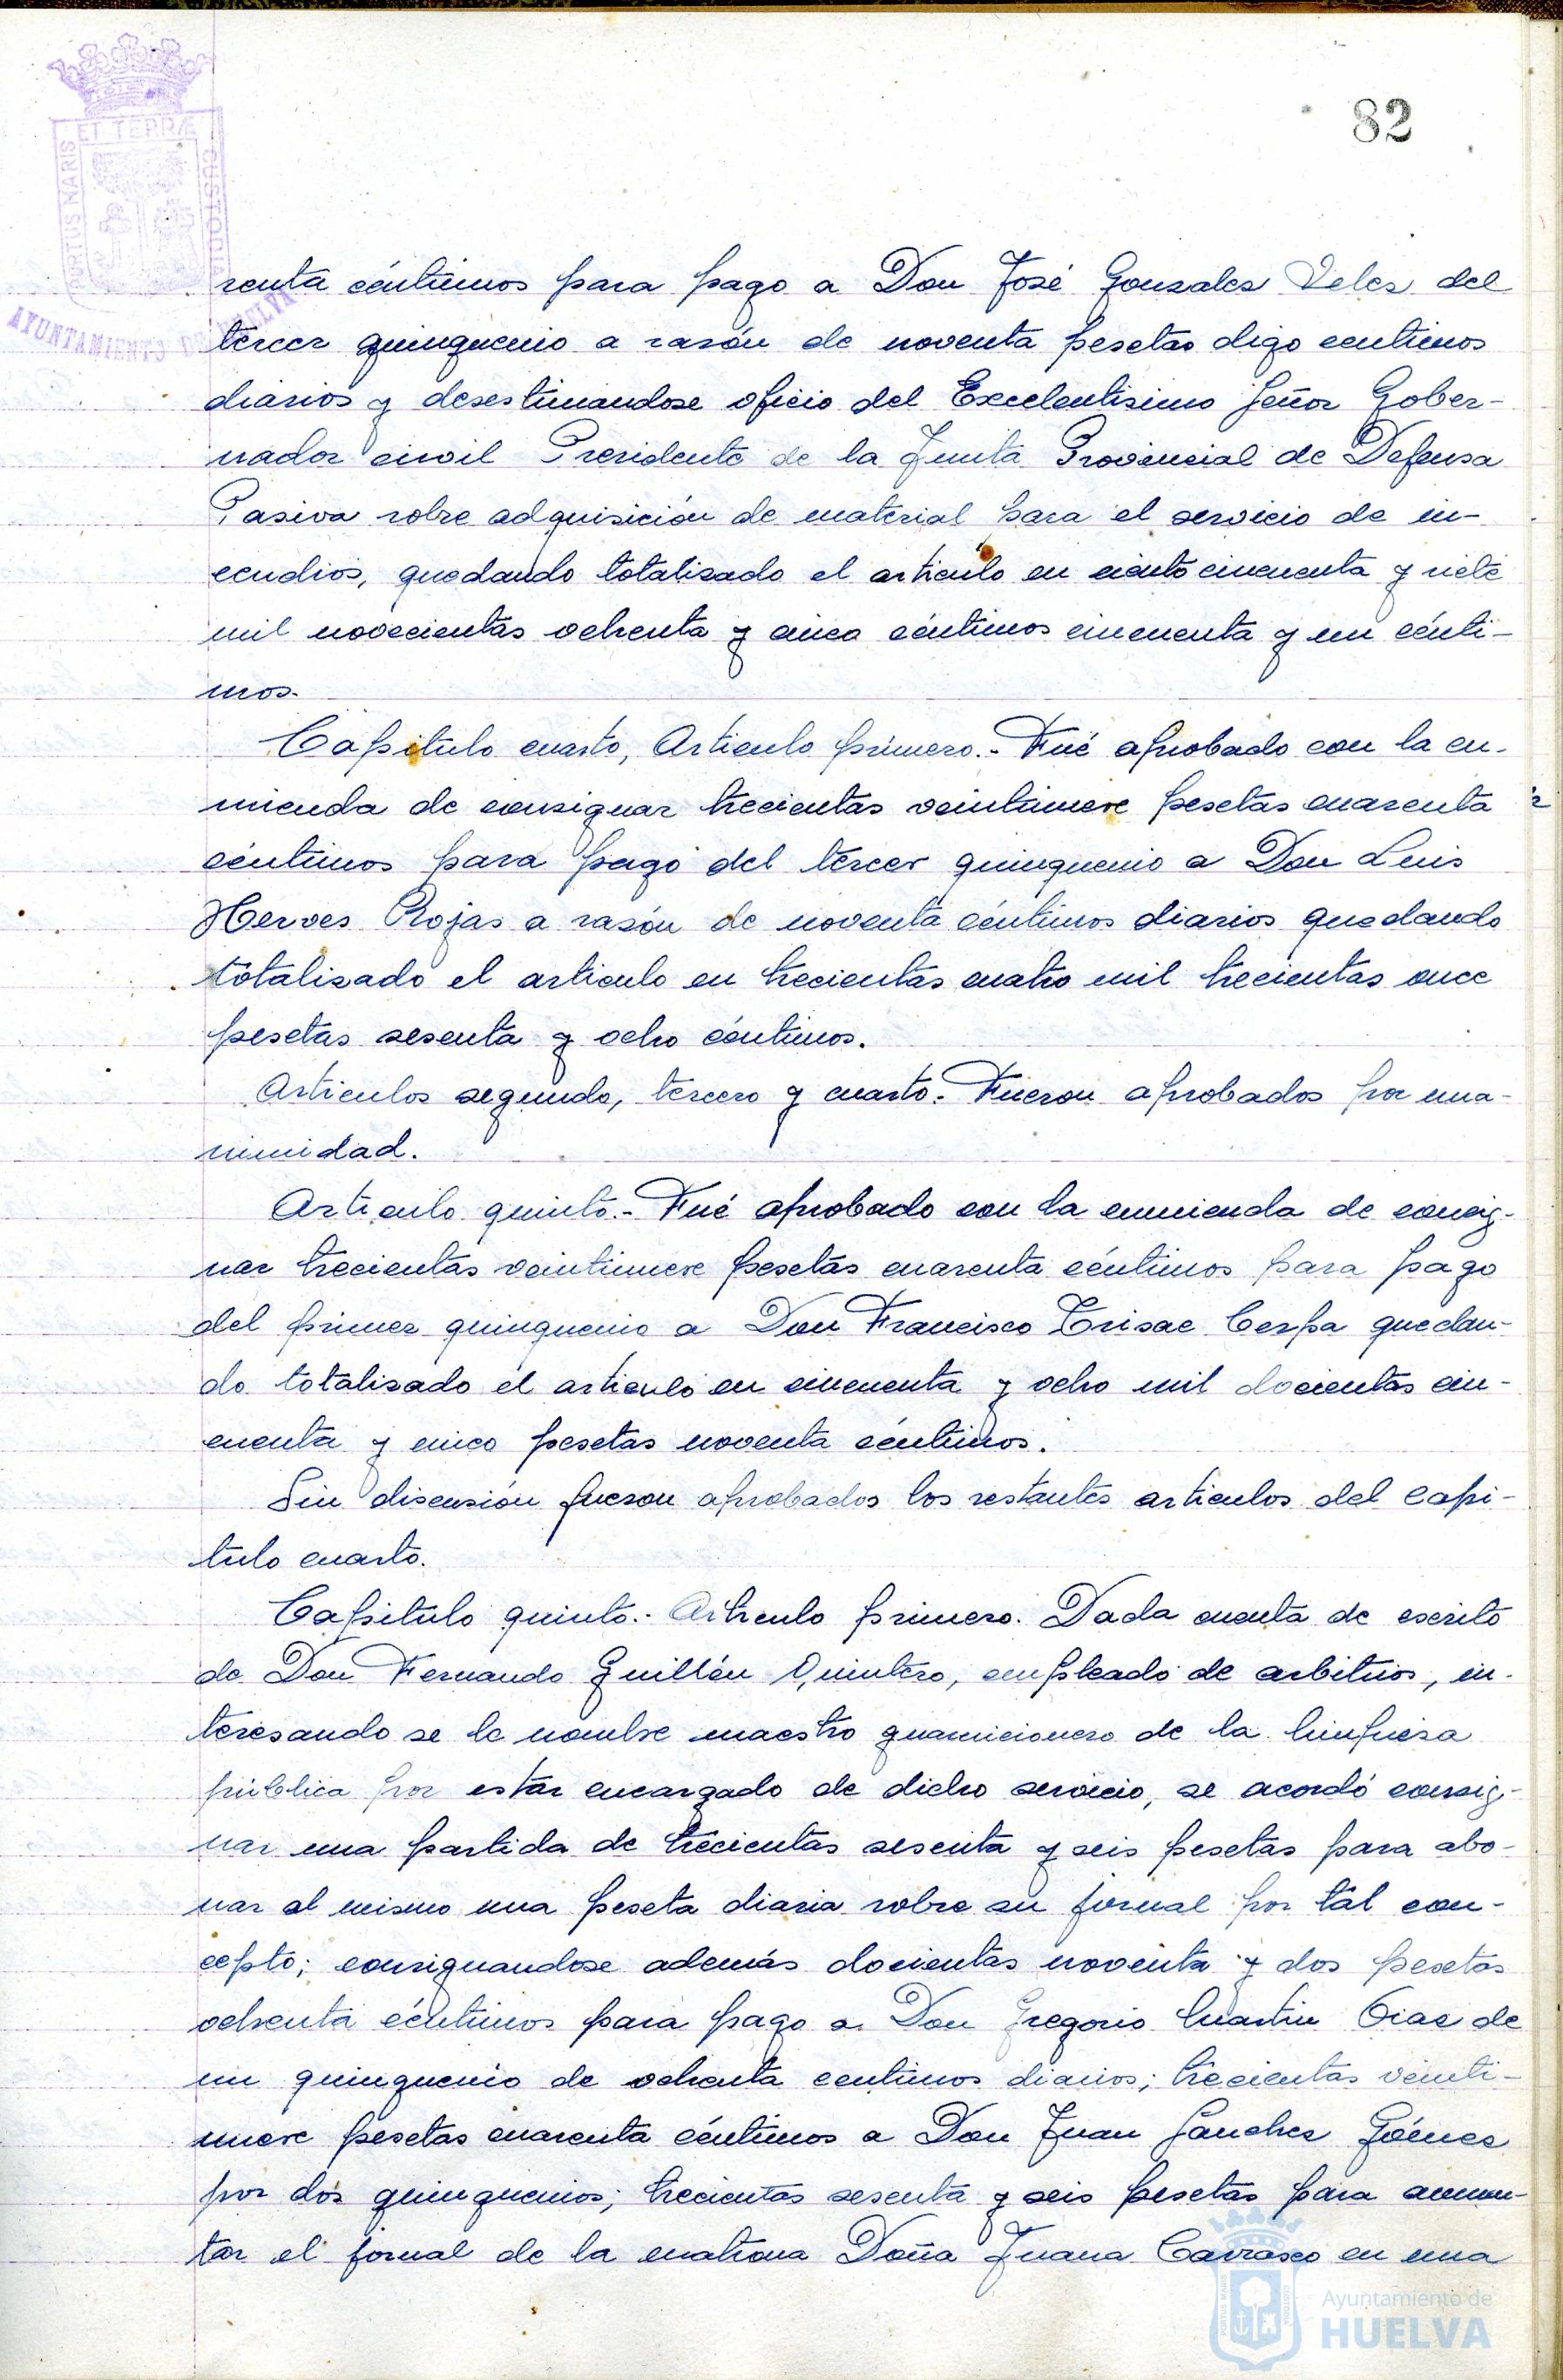 82
PORTUS MARIS ET TERRÆ CUSTODIA
AYUNTAMIENTO DE HUELVA
renta céntimos para pago a Don José Gonzalez Velez del
tercer quinquenio a razón de noventa pesetas digo centimos
diarios y desestimandose oficio del Excelentisimo Señor Gober-
nador civil Presidente de la Junta Provincial de Defensa
Pasiva sobre adquisición de material para el servicio de in-
cendios, quedando totalizado el articulo en ciento cincuenta y siete
mil novecientas ochenta y cinco céntimos cincuenta y un cénti-
mos.
Capitulo cuarto, Articulo primero.- Fué aprobado con la en-
mienda de consignar trecientas veintinueve pesetas cuarenta
céntimos para pago del tercer quinquenio a Don Luis
Herves Rojas a razón de noventa céntimos diarios quedando
totalizado el articulo en trecientas cuatro mil trecientas once
pesetas sesenta y ocho céntimos.
Articulos segundo, tercero y cuarto.- Fueron aprobados por una-
nimidad.
Articulo quinto.- Fué aprobado con la enmienda de consig-
nar trecientas veintinueve pesetas cuarenta céntimos para pago
del primer quinquenio a Don Francisco Trisac Cerpa quedan-
do totalizado el articulo en cincuenta y ocho mil docientas cin-
cuenta y cinco pesetas noventa céntimos.
Sin discusión fueron aprobados los restantes articulos del Capi-
tulo cuarto.
Capitulo quinto.- Articulo primero. Dada cuenta de escrito
de Don Fernando Guillén Quintero, empleado de arbitrios, in-
teresando se le nombre maestro guarnicionero de la limpieza
pública por estar encargado de dicho servicio, se acordó consig-
nar una partida de trecientas sesenta y seis pesetas para abo-
nar al mismo una peseta diaria sobre su jornal por tal con-
cepto; consignandose además docientas noventa y dos pesetas
ochenta céntimos para pago a Don Gregorio Martin de
un quinquenio de ochenta centimos diarios; trecientas veinti-
nueve pesetas cuarenta céntimos a Don Juan Sanchez Gómez
por dos quinquenios; trecientas sesenta y seis pesetas para aumen-
tar el jornal de la matrona Doña Juana Carrasco en una
Ayuntamiento de
HUELVA